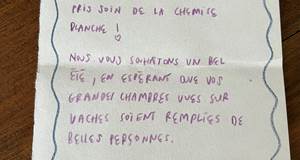 PRIS SOIN DE LA CHEMISE
BLANCHE !
NOUS VOUS SOUHAITONS UN BEL
ÉTÉ, EN ESPÉRANT QUE VOS
GRANDES CHAMBRES VUES SUR
VACHES SOIENT REMPLIES DE
BELLES PERSONNES.